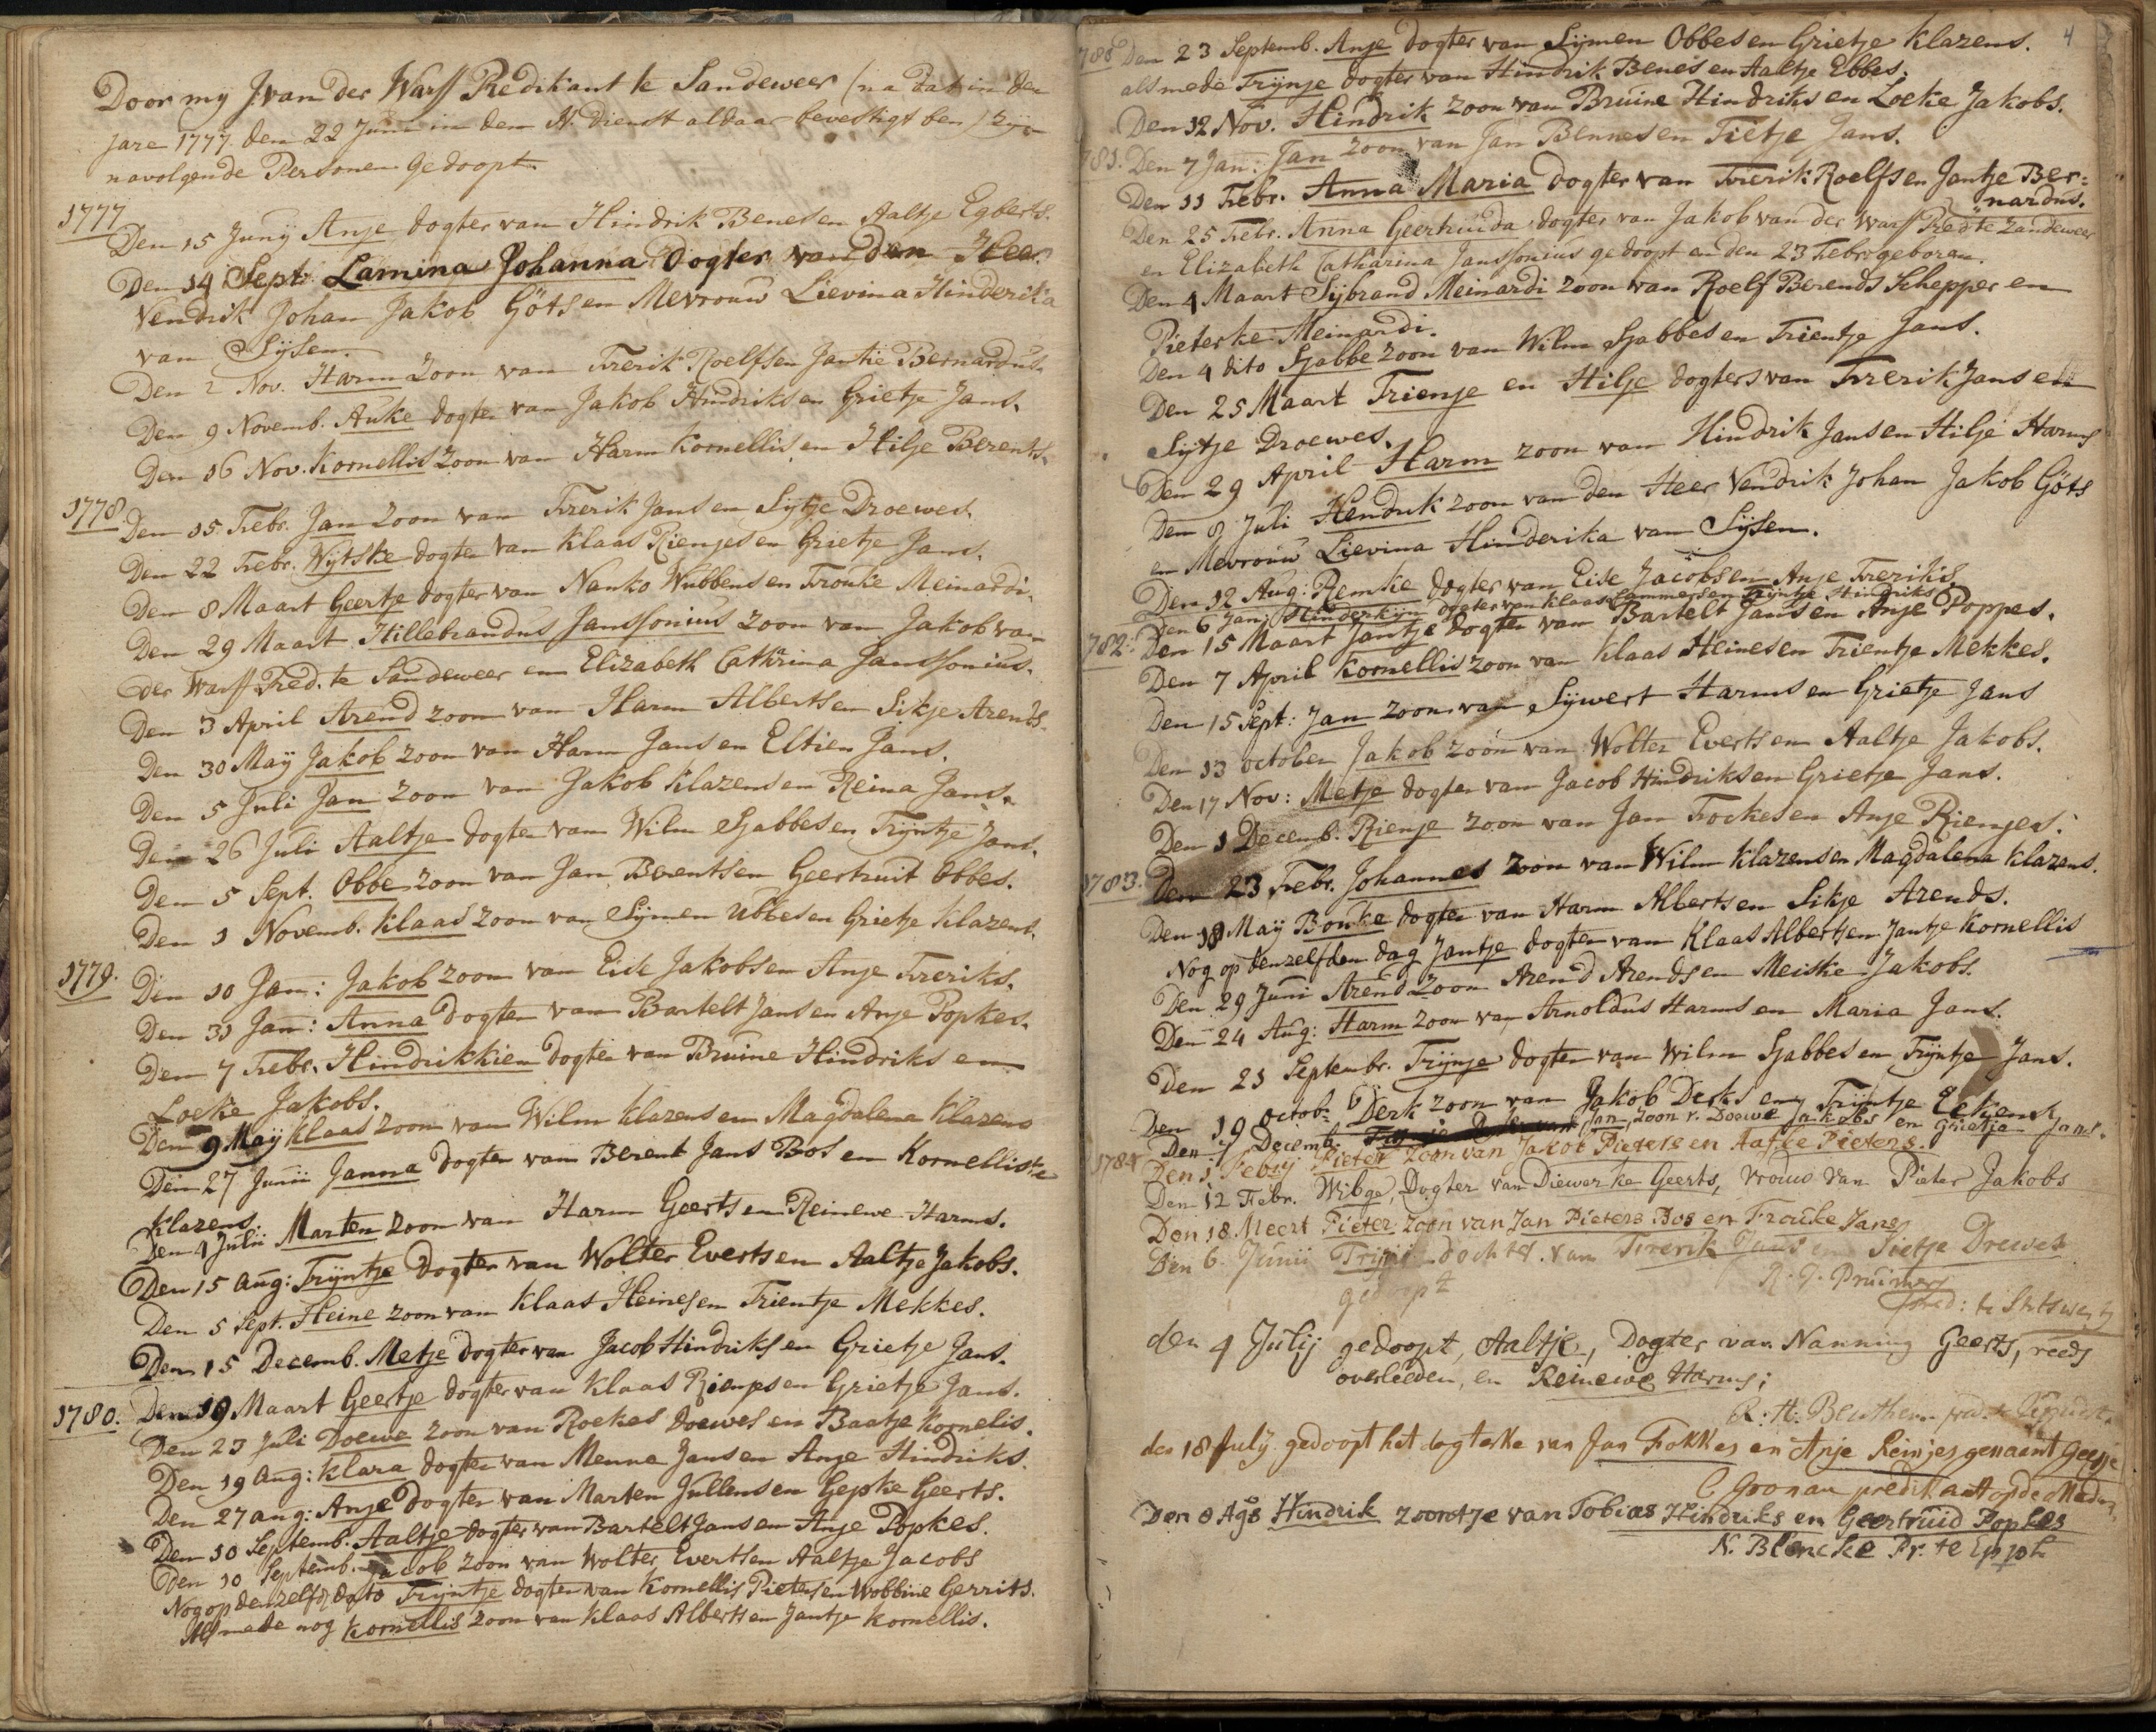 Door my J van der Warff Predikant te Sandeweer (na dat in den
jare 1777 den 22 Junii in den N. dienst aldaar bevestigt ben) zijn
navolgende Personen gedoopt
1777
Den 15 Junij Anje dogter van Hindrik Benes en Aaltje Egberts.
Den 14 Sept. Lamina Johanna Dogter van den Heer
Vendrik Johan Jakob Göts en Mevrouw Lievina Hinderika
van Sijsen.
Den 2 Nov. Harm Zoon van Frerik Roelfs en Jantie Bernardus.
Den 9 Novemb. Auke dogter van Jakob Hindriks en Grietje Jans.
Den 16 Nov. Kornellis zoon van Harm Kornellis en Hilje Berents.
1778 Den 15 Febr. Jan Zoon van Frerik Jans en Sijtje Droewes.
Den 22 Febr. Wijtske dogter van Klaas Rienjes en Grietje Jans.
Den 8 Maart Geertje dogter van Nanko Wubbens en Frouke Meinardi.
Den 29 Maart Hillebrandus Janssonius zoon van Jakob van
der Warff Pred. te Sandeweer en Elizabeth Cathrina Janssonius.
Den 3 April Arend zoon van Harm Alberts en Sikje Arends.
Den 30 Maij Jakob zoon van Harm Jans en Eltien Jans.
Den 5 Juli Jan zoon van Jakob Klazens en Reina Jans.
Den 26 Juli Aaltje dogter van Wilm Sjabbes en Trijntje Jans.
Den 5 Sept. Obbe zoon van Jan Berents en Geertruit Obbes.
Den 1 Novemb. Klaas zoon van Sijmen Ubbes en Grietje Klazens.
1779. Den 10 Jan: Jakob zoon van Eise Jakobs en Anje Freriks.
Den 31 Jan: Anna dogter van Bartelt Jans en Anje Popkes.
Den 7 Febr. Hindrikkien dogter van Bruine Hindriks en
Loeke Jakobs.
Den 9 Maij Klaas zoon van Wilm Klazens en Magdalena Klazens
Den 27 Junii Janna dogter van Berent Jans Bos en Kornelliske
Klazens.
Den 4 Julii Marten zoon van Harm Geerts en Reinewe Harms.
Den 15 Aug: Trijntje dogter van Wolter Everts en Aaltje Jakobs.
Den 5 Sept. Heine zoon van Klaas Heines en Trientje Mekkes.
Den 15 Decemb. Metje dogter van Jacob Hindriks en Grietje Jans.
1780. Den 19 Maart Geertje dogter van Klaas Rienjes en Grietje Jans.
Den 23 Juli Doewe zoon van Roekes Doewes en Baatje Kornelis.
Den 19 Aug: Klara dogter van Menne Jans en Anje Hindriks.
Den 27 aug: Anje dogter van Marten Jullens en Gepke Geerts.
Den 10 Septemb. Aaltje dogter van Bartelt Jans en Anje Popkes.
Den 10 Septemb. Jacob zoon van Wolter Everts en Aaltje Jacobs
Nog op denzelfd dato Trijntje dogter van Kornellis Pieters en Wobbine Gerrits.
Als mede nog Kornellis zoon van Klaas Alberts en Jantje Kornellis.
4
1780 Den 23 Septemb. Anje dogter van Sijmen Obbes en Grietje Klazens.
als mede Trijnje dogter van Hindrik Benes en Aaltje Ebbes.
Den 12 Nov. Hindrik zoon van Bruine Hindriks en Loeke Jakobs.
781. Den 7 Jan: Jan zoon van Jan Bennes en Tietje Jans.
Den 11 Febr. Anna Maria dogter van Frerik Roelfs en Jantje Ber=
nardus.
Den 25 Febr. Anna Geertruida dogter van Jakob van der Warff Pred te Zandeweer
en Elizabeth Catharina Janssonius gedoopt en den 23 Febr: geboren.
Den 4 Maart Sijbrand Meinardi zoon van Roelf Berends Schepper en
Pieterke Meinardi.
Den 4 dito Sjabbe zoon van Wilm Sjabbes en Trientje Jans.
Den 25 Maart Trienje en Hilje dogters van Frerik Jans en
Sijtje Droewes.
Den 29 April Harm zoon van Hindrik Jans en Hilje Harms
Den 8 Juli Hendrik zoon van den Heer Vendrik Johan Jakob Göts
en Mevrouw Lievina Hinderika van Sijsen.
Den 12 Aug: Remke dogter van Eise Jacobs en Anje Freriks.
Den 6 Jan. Hinderkijn dogter van Klaas Lammers en Trijntje Hindriks
782. Den 15 Maart Jantje dogter van Bartelt Jans en Anje Poppes.
Den 7 April Kornellis zoon van Klaas Heines en Trientje Mekkes.
Den 15 Sept: Jan zoon van Sijwert Harms en Grietje Jans
Den 13 october Jakob zoon van Wolter Everts en Aaltje Jakobs.
Den 17 Nov: Metje dogter van Jacob Hindriks en Grietje Jans.
Den 1 Decemb. Rienje zoon van Jan Fockes en Anje Rienjes.
1783. Den 23 Febr. Johannes zoon van Wilm Klazens en Magdalena Klazens.
Den 18 Maij Bouke dogter van Harm Alberts en Sikje Arends.
Nog op denzelfden dag Jantje dogter van Klaas Alberts en Jantje Kornellis
Den 29 Juni Arend Zoon Arend Arends en Meiske Jakobs.
Den 24 Aug: Harm zoon van Arnoldus Harms en Maria Jans.
Den 21 Septembr. Trijnje dogter van Wilm Sjabbes en Trijntje Jans.
Den 19 octob: Derk zoon van Jakob Derks en Trijntje
Den 7 Decemb. Jan, zoon v. Doewe Jakobs en Grietje Jans.
1784 Den 1 Febrij Pieter zoon van Jakob Pieters en Aafke Pieters.
Den 12 Febr. Wibge, Dogter van Diewerke Geerts, vrouw van Pieter Jakobs
Den 18 Meert Pieter zoon van Jan Pieters Bos en Frouke Jans
Den 6. Junii Trijnje dochter van Frerik Jans en Sietje Drewes
gedoopt
Pred: te
den 4 Julij gedoopt, Aaltje, Dogter van Nanning Geerts, reeds
overleeden, en Reinewe Harms;
den 18 July gedoopt het dogterke van Jan Fokkes en Anje Reinjes genaamt Geesje
C Goonan predikant op de Meden.
Den 8 Ags Hindrik zoontje van Tobias Hindriks en Geertruid Popkes
N. Blencke Pr. te